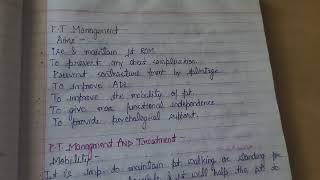 P.T. Management
Aims -
To prevent any chest complication.
Prevent contracture
To improve ADL
To improve the mobility of pt.
To give more functional independence
To provide psychological support.
P.T. Management And Treatment -
Mobility -
It is imp. to maintain pt walking or standing for
it will help the pt to